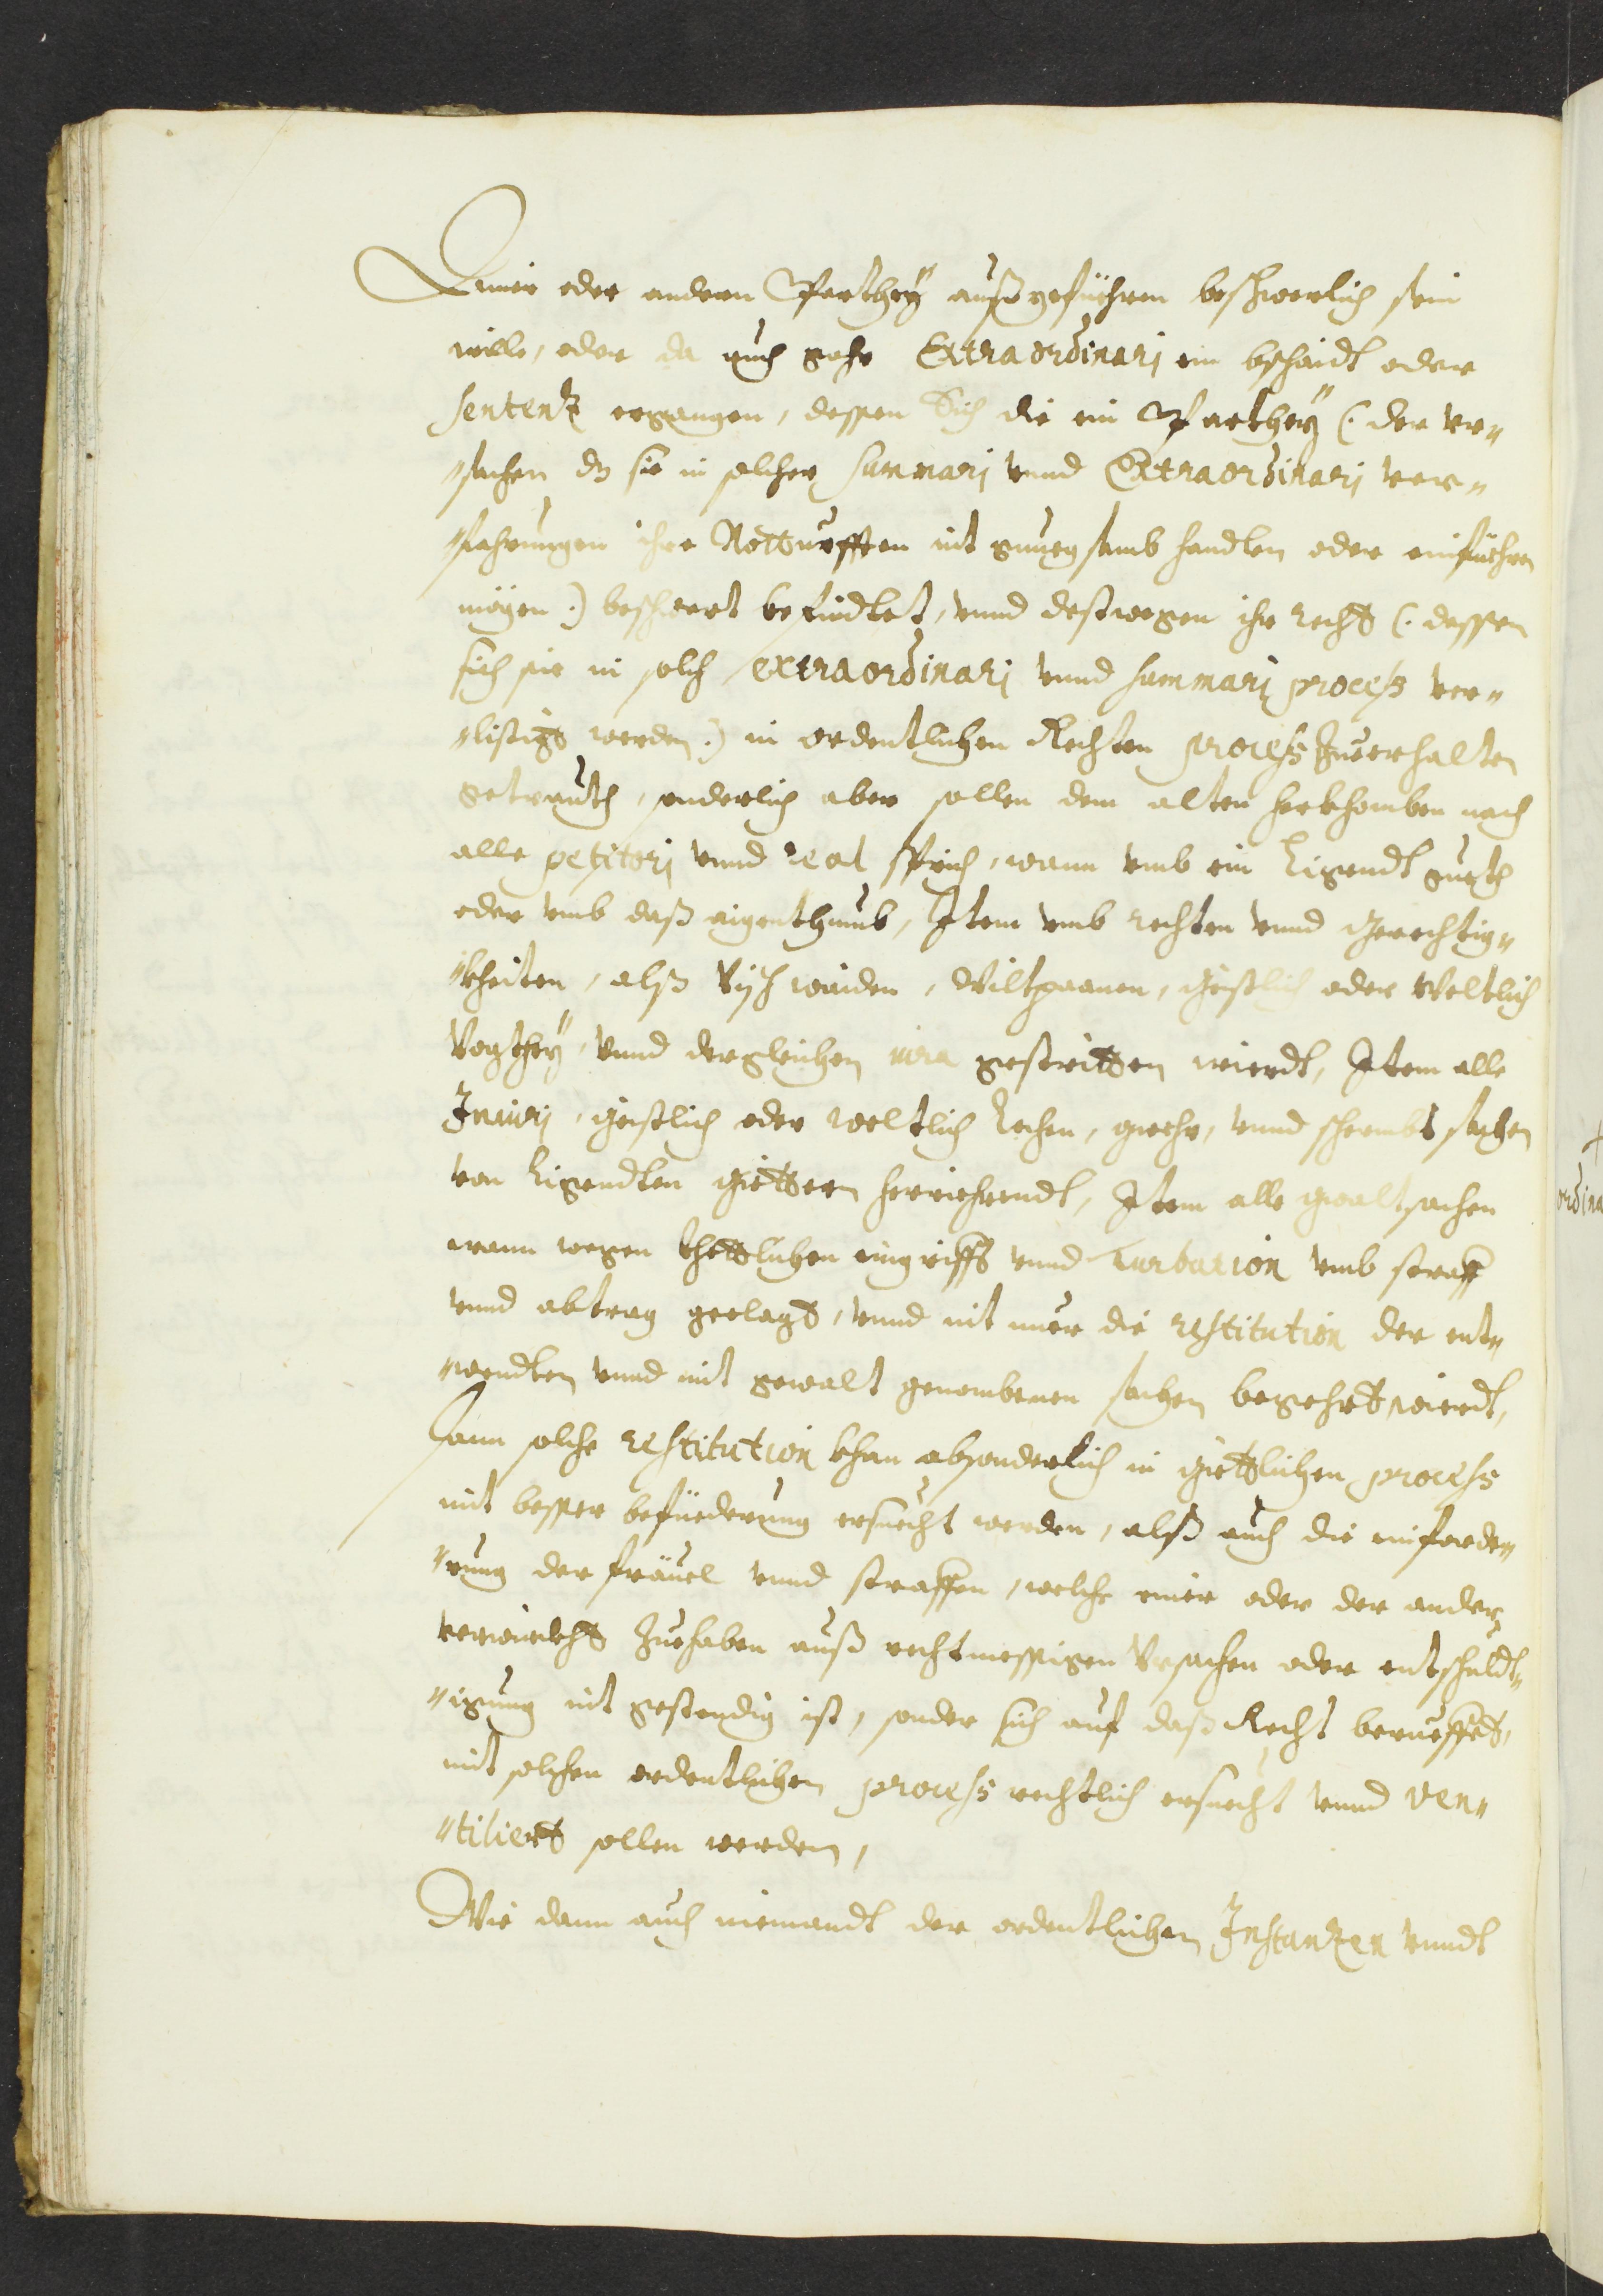 Einer oder andern Parthey außgefüehren beschwerlich sein
wille, oder da auch gahr Extraordinarj ein bschaidt oder
sententz ergangen, dessen Sich die ein Parthey (: der vr„
„sachen dz sie in solcher summarj vnnd Extraordinarj ver„
„fahrungen ihre Notturfften nit gnuegsamb handlen oder einfüehren
mögen :) beschwert befindtet, vnnd deßwegen ihr recht (: dessen
sich sie in solch extraordinarj vnnd summarj process ver„
„listigt worden :) in ordentlichen Rechten process Zuerhalten
getrauth, sonderlich aber sollen dem alten herkhomben nach
alle petitorj vnnd real sprich, wann vmb ein Ligendt gueth
oder vmb daß aigenthumb, Item vmb rechten vnnd gerechtig„
„kheiten, alß Vych waiden, Wiltpaanen, geistlich oder Weltlich
Vogthey, vnnd dergleichen iura gestritten wierdt, Item alle
Iniurj, geistlich oder weltlich Lechen, gwehr, vnnd schrembs sachen
von Ligendten giettern herriehrendt, Item alle gwaltsachen
wann wegen thettlichen eingriffs vnnd turbation vmb straff
vnnd abtrag geclagt, vnnd nit nuer die restitution der ent„
„wendten vnnd mit gewalt genombenen sachen begehrt wierdt,
dann solche restitution khan absonderlich in giettlichen process
mit besser befüederung ersuecht werden, alß auch die einforde„
„rung der fräuel vnnd straffen, welche einer oder der ander
verwirckht Zuehaben auß rechtmessigen Vrsachen oder entschuldt„
„igung nit gestendig ist, sonder sich auf daß Recht berueffet,
mit solchen ordentlichen process rechtlich ersuecht vnnd ven„
„tiliert sollen werden,
Wie dann auch niemandt der ordentlichen Instantzen vnndt
ordina